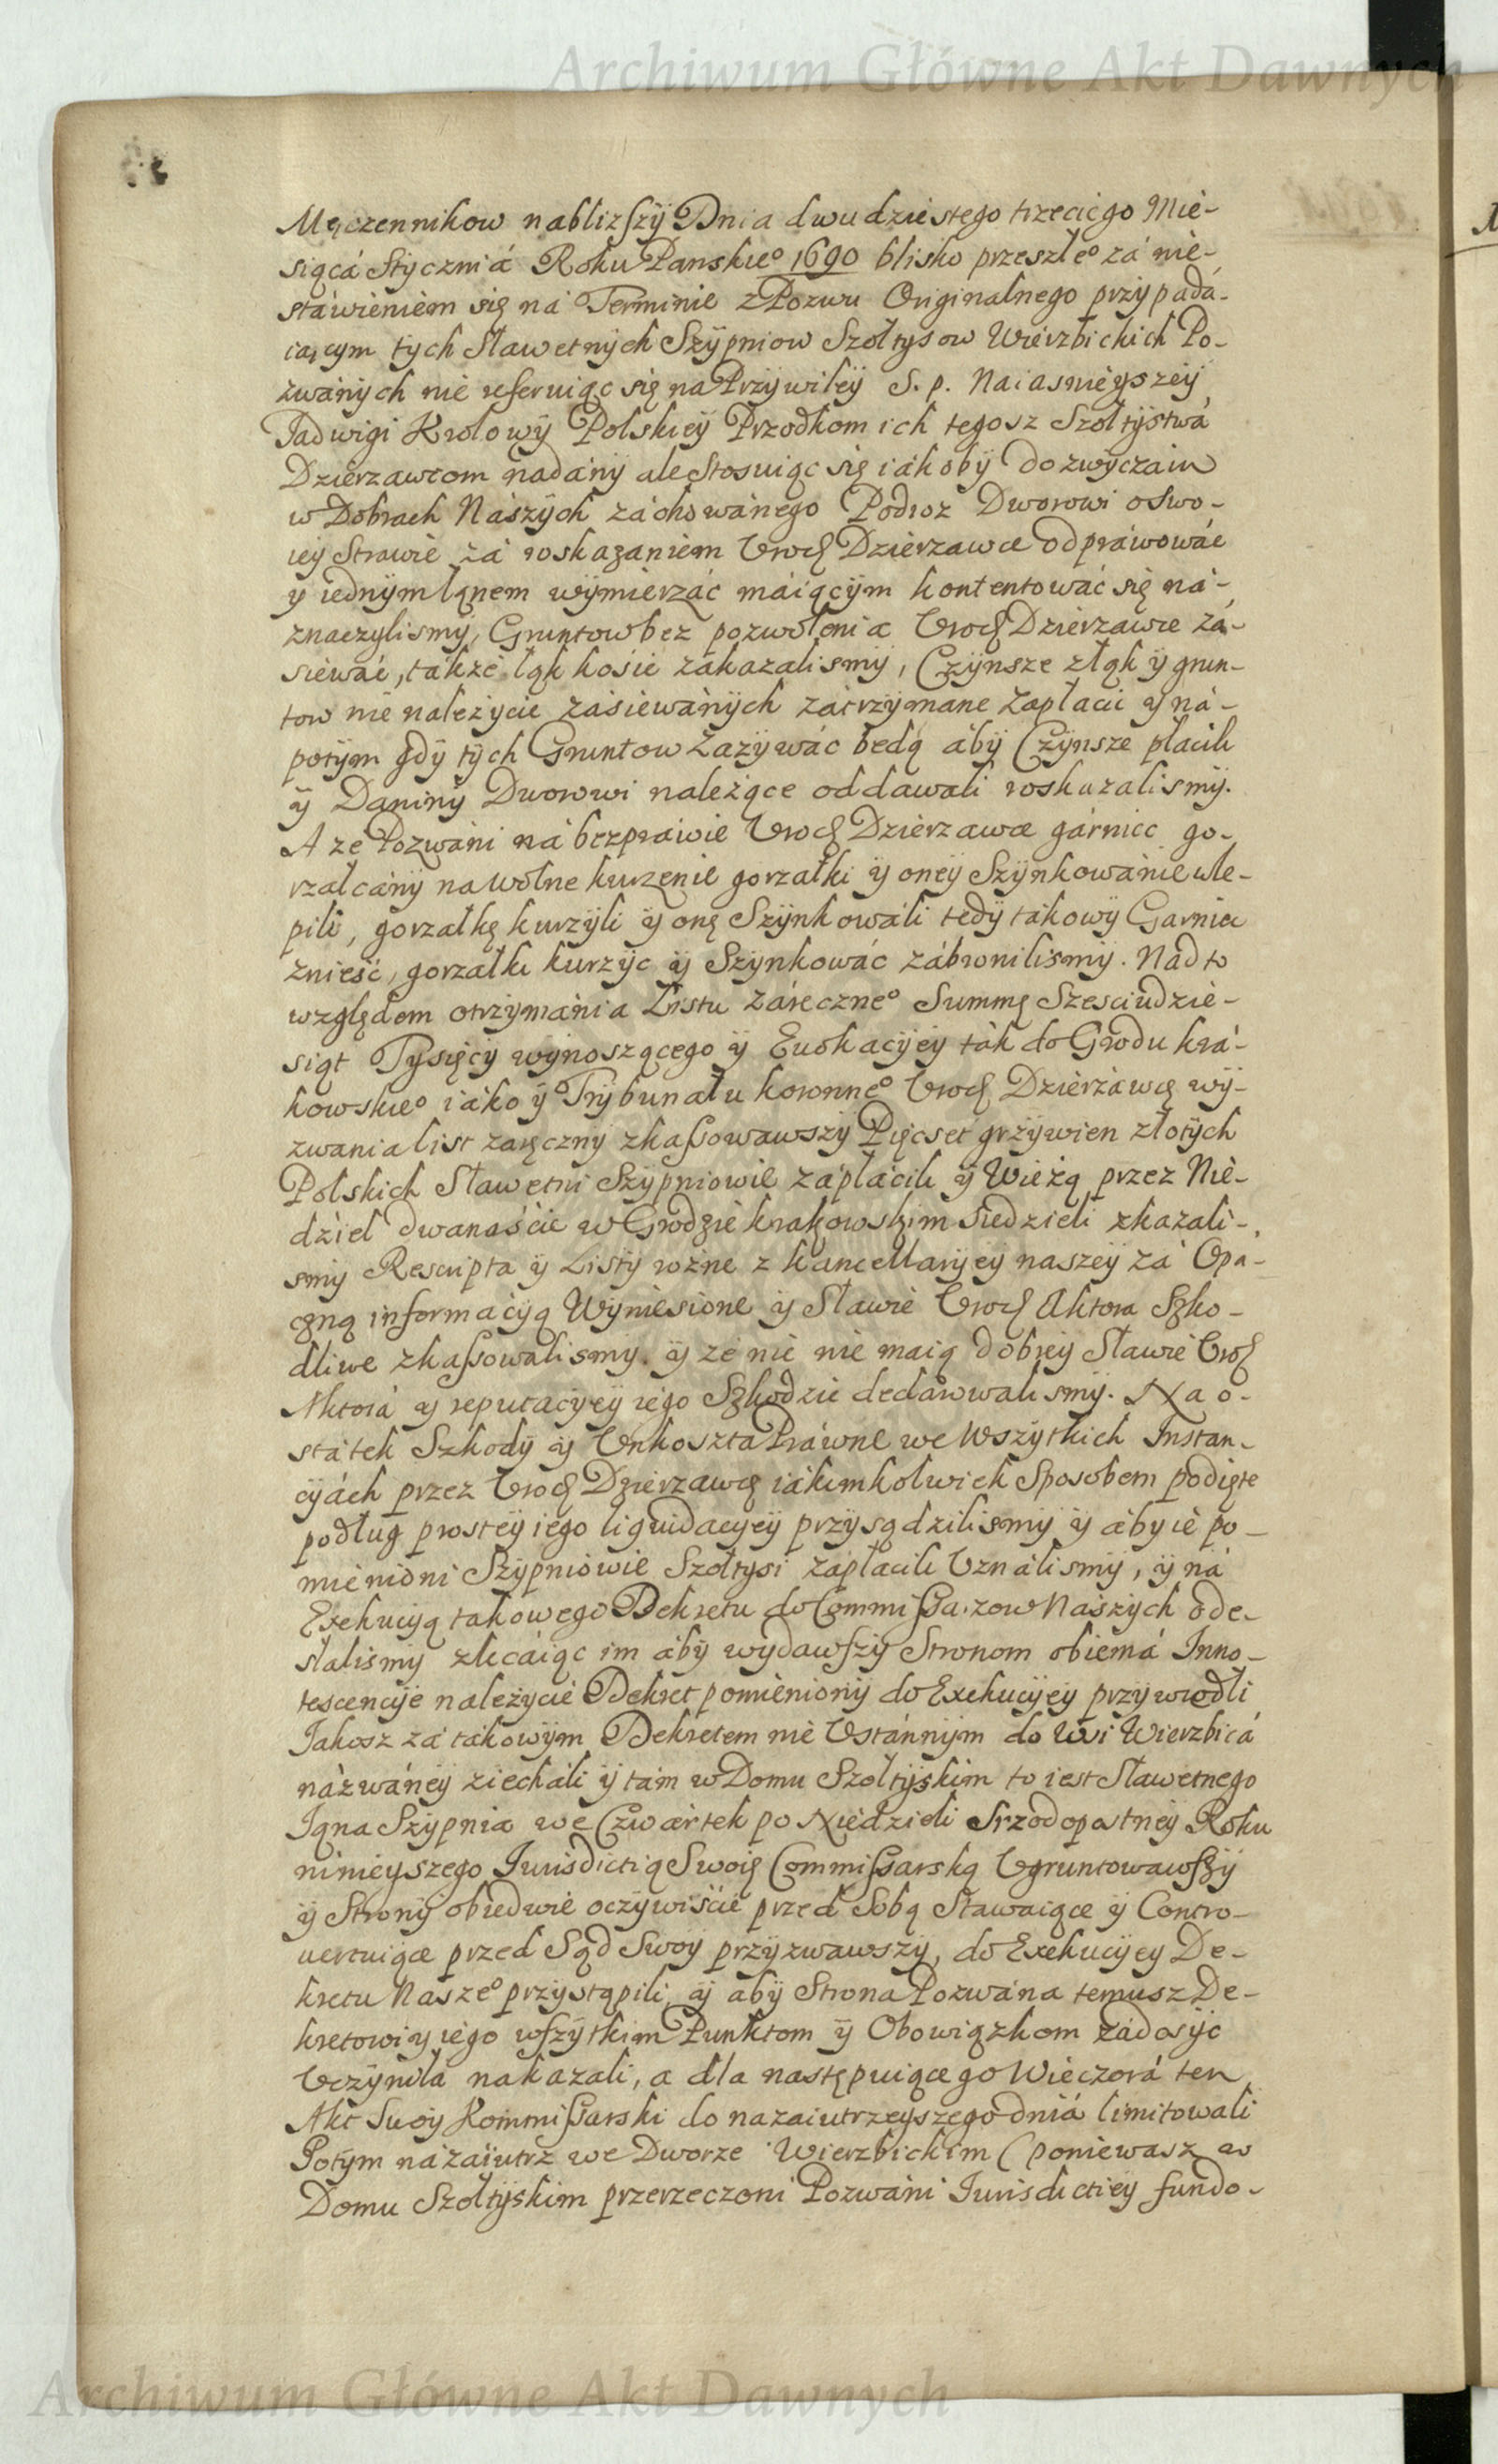 Archiwum Główne Akt Dawnych
Męczennikow nablizszy Dnia dwudziestego trzeciego Mie-
siącá Styczniá Roku Panskieº 1690 blisko przeszłeº zá nie-
stáwieniem się ná Terminie z Pozwu Originalnego przypadá-
iącym tych Sławetnych Szÿpniow Szołtysow Wierzbickich Po-
zwánÿch nie referuiąc się na Przÿwiley S. p. Naiasnieyszeÿ
Jadwigi Krolowÿ Polskieÿ Przodkom ich tegosz Szołtÿstwá
Dzierzawcom nadánÿ ale Stosuiąc się iákobÿ do zwyczaiu
w Dobrach Nászÿch záchowánego Podroz Dworowi o swo-
ieÿ Strawie zá roskazaniem Vroḍ Dzierzawce odpráwowáć
y iednÿm łąnem wÿmierzáć máiącÿm kontentowáć się ná-
znaczÿlismÿ, Gruntow bez pozwolenia Vroḍ Dzierzawce zá-
siewáć, tákże łąk kosić zákazalismÿ, Czÿnsze z łąk ÿ grun-
tow nie należycie zásiewánÿch zátrzÿmane zapłacić ÿ ná-
potÿm gdÿ tÿch Gruntow zażÿwáć będą ábÿ Czÿnsze płacili
ÿ Daninÿ Dworowi należące oddawali roskazalismÿ.
A że Pozwáni ná bezprawie Vroḍ Dzierzawce gárniec go-
rzałczánÿ na wolne kurzenie gorzałki ÿ oneÿ Szÿnkowánie ule-
pili, gorzałkę kurzÿli ÿ onę Szÿnkowáli tedÿ tákowÿ Garniec
znieść, gorzałki kurzÿc ÿ Szÿnkowáć zábronilismÿ. Nadto
względem otrzÿmánia Listu záręczneº Summę Szesciudzie-
siąt Tysięcÿ wÿnoszącego ÿ Ewokacÿeÿ ták do Grodu krá-
kowskieº iáko ÿ Trÿbunału koronneº Vroḍ Dzierżáwcę wÿ-
zwania list zaręcznÿ zkassowawszÿ Pięcset grzÿwien złotÿch
Polskich Sławetni Szÿpniowie zápłácili ÿ Wieżą przez Nie-
dziel dwanaście w Grodzie krakowskim siedzieli zkazali-
smÿ Rescripta ÿ Listÿ rożne z kancellarÿeÿ naszeÿ zá Opá-
czną informácÿą Wÿniesione ÿ Sławie Vroḍ Aktora Szko-
dliwe zkassowalismÿ. ÿ że nic nie maią dobreÿ Sławie Vroḍ
Aktorá ÿ reputacÿeÿ iego Szkodzić declarowalismÿ. Na o-
státek Szkodÿ ÿ Vnkoszta Práwne we Wszÿtkich Instan-
cÿách przez Vroḍ Dzierzawcę iákimkolwiek Sposobem podięte
podług prosteÿ iego liquidacÿeÿ przÿsądzilismÿ ÿ ábÿ ie po-
mienioni Szÿpniowie Szołtysi zapłacili Vználismÿ, ÿ ná
Exekucÿą takowego Dekretu do Commissarzow Nászÿch ode-
słalismÿ zlecáiąc im ábÿ wÿdawszÿ Stronom obiemá Inno-
tescencÿe należycie Dekret pomienionÿ do Exekucÿeÿ przÿwiodli
Jakosz zá tákowÿm Dekretem nie Vstánnÿm do Wsi Wierzbicá
názwáneÿ ziecháli ÿ tám w Domu Szołtÿskim to iest Sławetnego
Jąna Szÿpnia we Czwártek po Niedzieli Srzodopostneÿ Roku
ninieÿszego Jurisdictią Swoię Commissarską Vgruntowawszÿ
ÿ Stronÿ obiedwie oczÿwiście przed Sobą Stawaiące ÿ Contro-
uertuiące przed Sąd Swoÿ przÿzwawszÿ, do Exekucÿeÿ De-
kretu Naszeº przÿstąpili, ÿ abÿ Strona Pozwána temusz De-
kretowi ÿ iego wszÿtkim Punktom ÿ Obowiązkom zádosÿc
Vczÿniłá nakazali, a dla następuiącego Wieczorá ten
Akt Swoÿ Kommissarski do nazaiutrzeÿszego dniá limitowali
Potÿm názáiutrz we Dworze Wierzbickim (poniewasz w
Domu Szołtÿskim przerzeczoni Pozwáni Jurisdictieÿ fundo-
Archiwum Główne Akt Dawnych